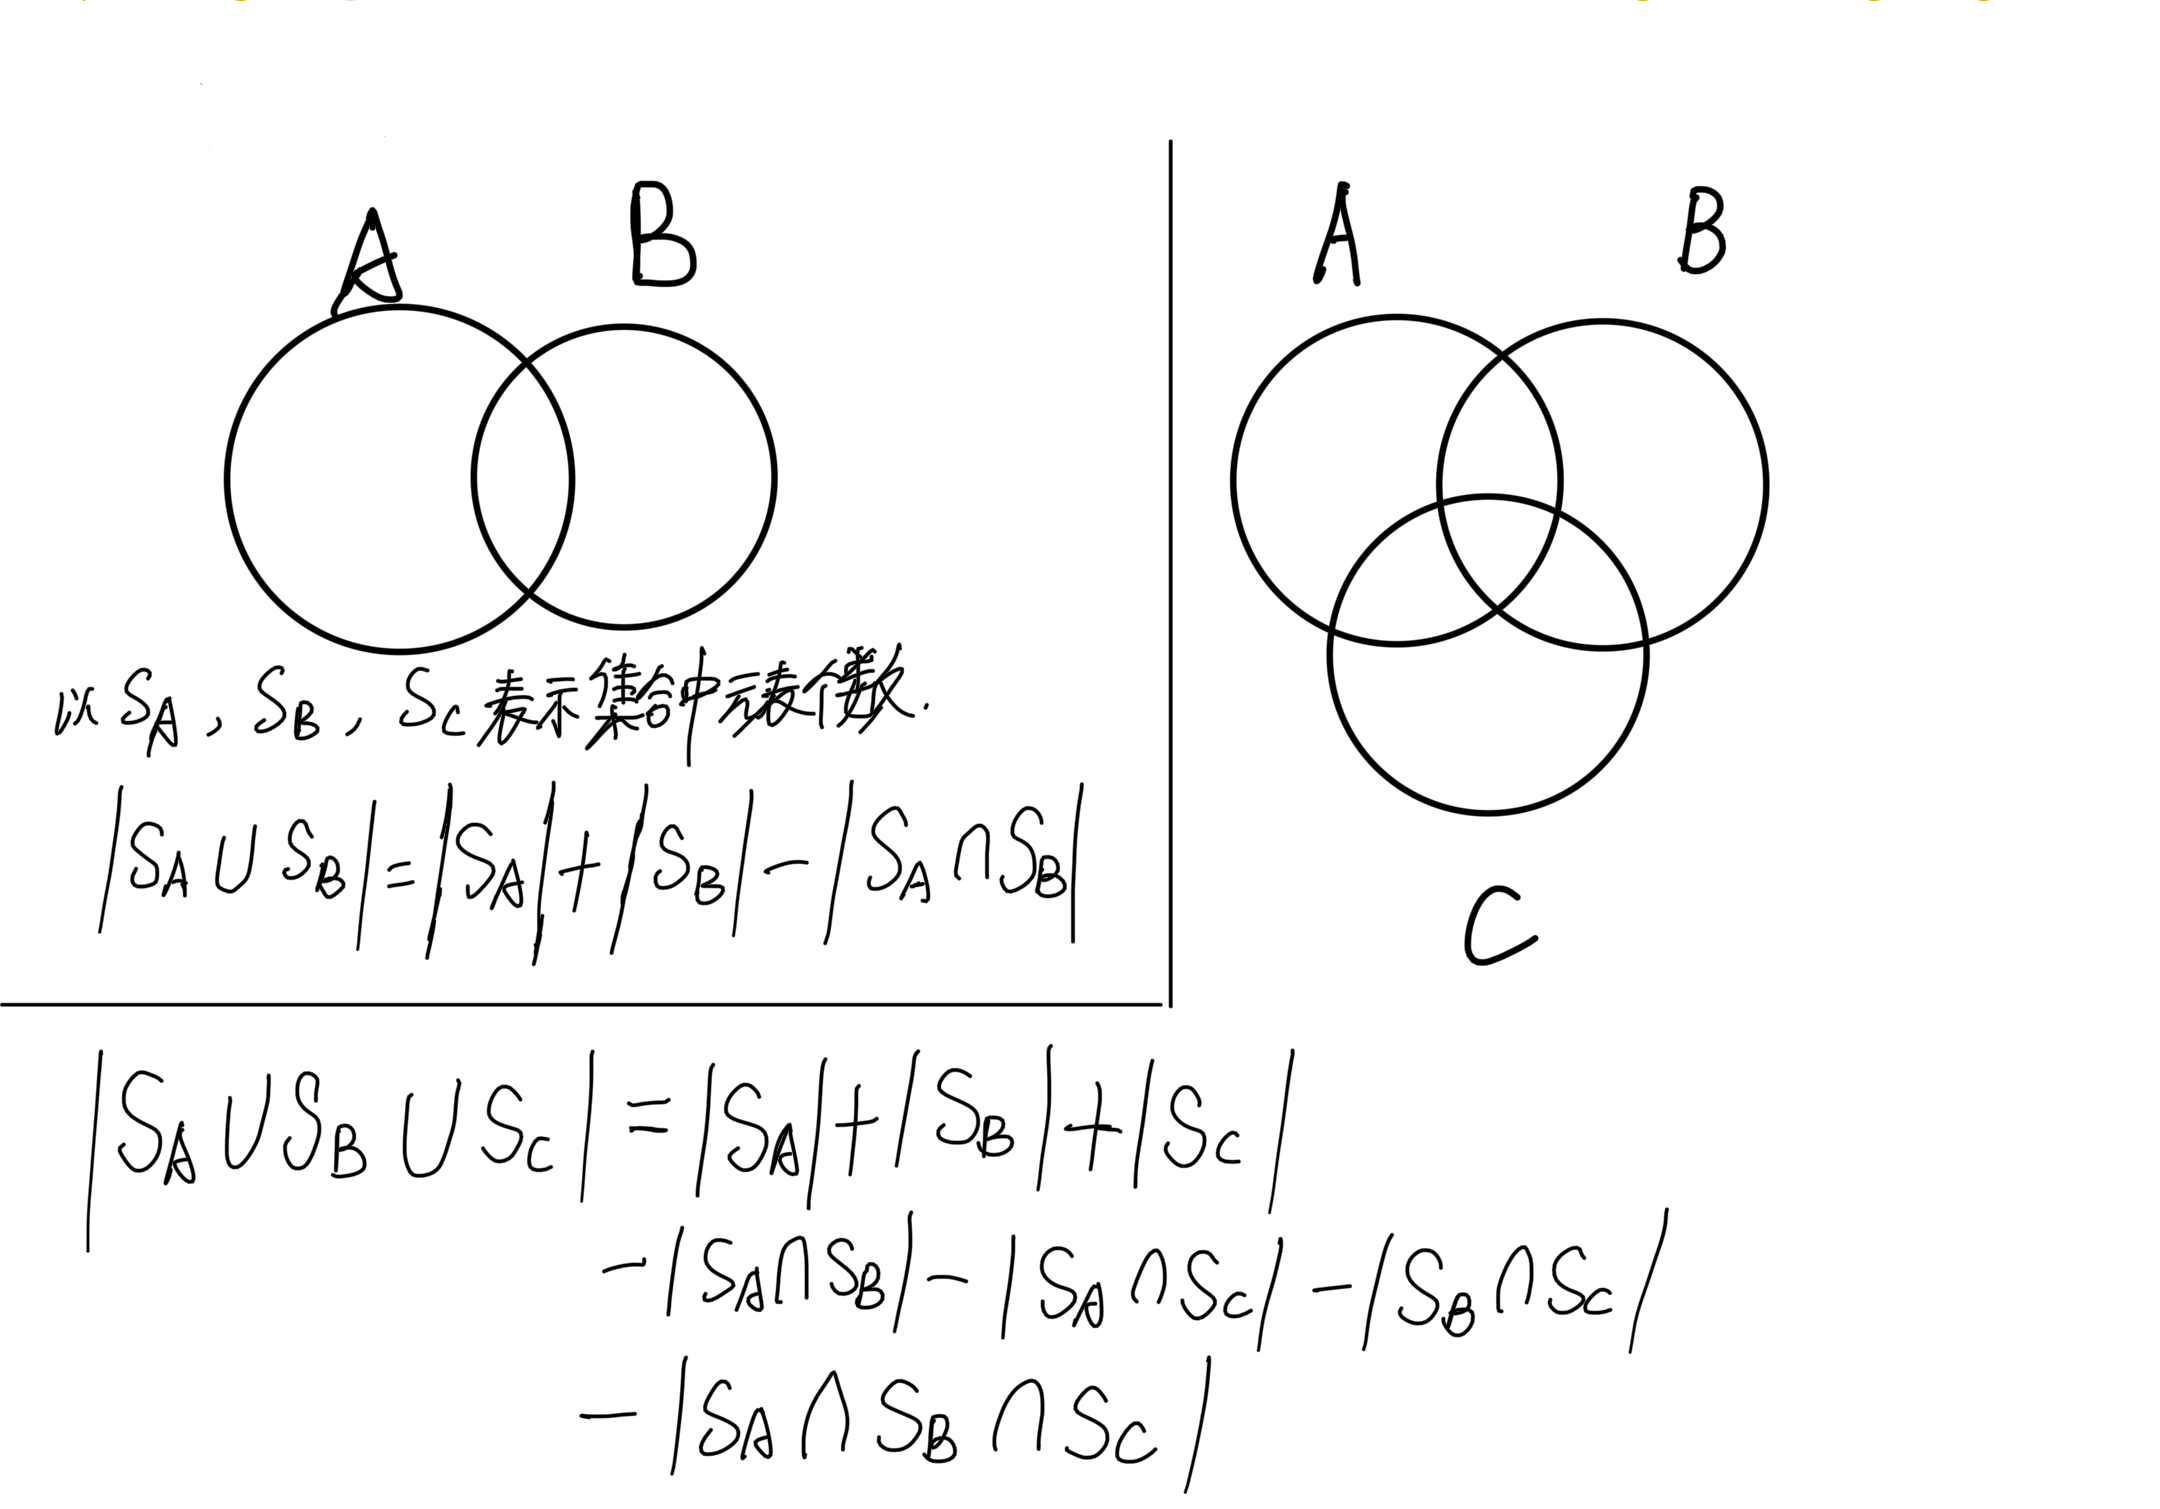 A B
以 S_A, S_B, S_C 表示集合中元素个数.
|S_A ∪ S_B| = |S_A| + |S_B| - |S_A ∩ S_B|
A B
C
|S_A ∪ S_B ∪ S_C| = |S_A| + |S_B| + |S_C|
- |S_A ∩ S_B| - |S_A ∩ S_C| - |S_B ∩ S_C|
- |S_A ∩ S_B ∩ S_C|